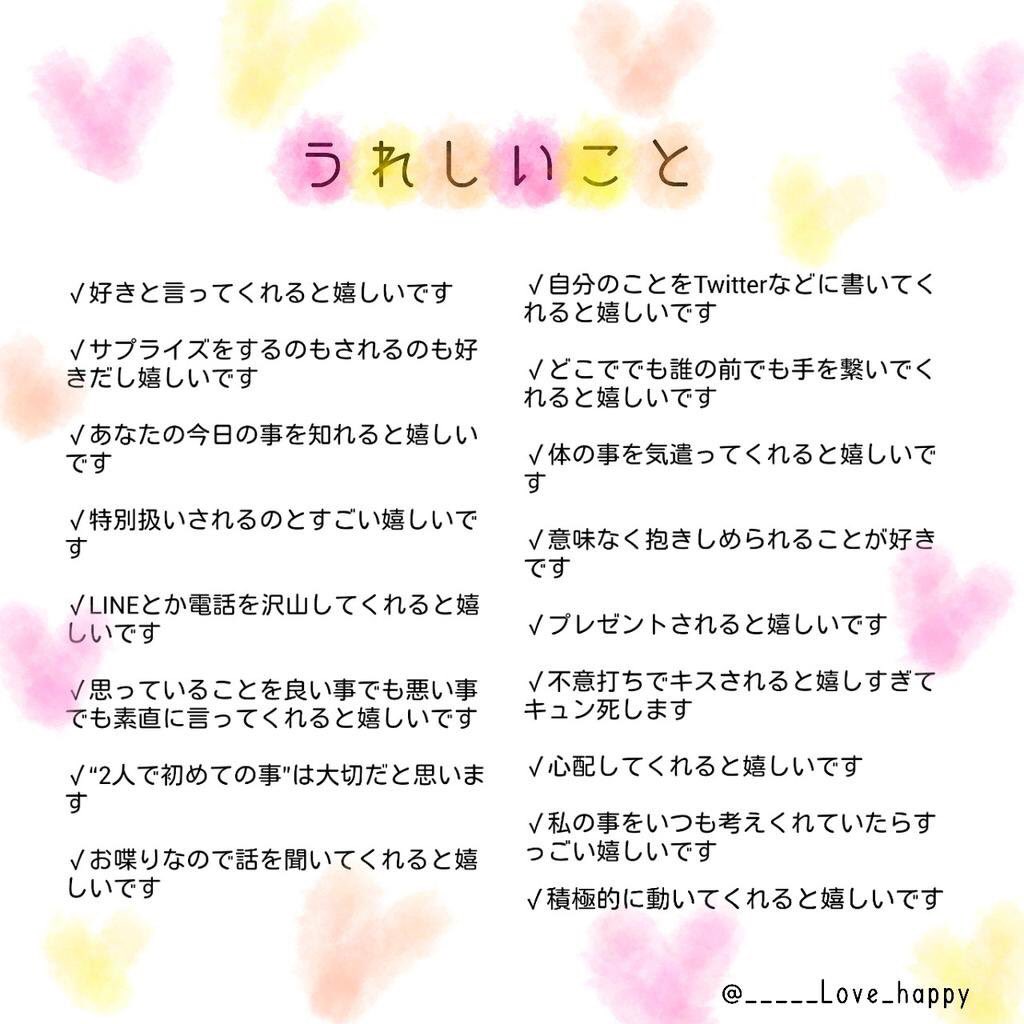 うれしいこと
√好きと言ってくれると嬉しいです
√サプライズをするのもされるのも好
きだし嬉しいです
√あなたの今日の事を知れると嬉しい
です
√特別扱いされるのとすごい嬉しいで
す
√LINEとか電話を沢山してくれると嬉
しいです
√思っていることを良い事でも悪い事
でも素直に言ってくれると嬉しいです
√“2人で初めての事”は大切だと思いま
す
√お喋りなので話を聞いてくれると嬉
しいです
√自分のことをTwitterなどに書いてく
れると嬉しいです
√どこででも誰の前でも手を繋いでく
れると嬉しいです
√体の事を気遣ってくれると嬉しいで
す
√意味なく抱きしめられることが好き
です
√プレゼントされると嬉しいです
√不意打ちでキスされると嬉しすぎて
キュン死します
√心配してくれると嬉しいです
√私の事をいつも考えくれていたらす
っごい嬉しいです
√積極的に動いてくれると嬉しいです
@_____Love_happy